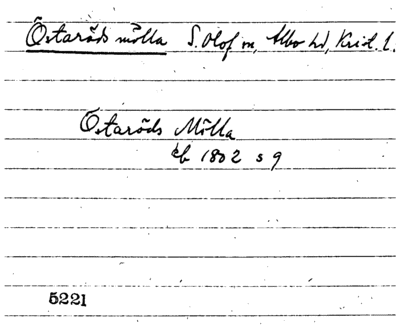 Östaröds mölla S. Olof sn, Albo hd, Krist. l.
Östaröds Mölla
kb 1802 s 9
5221